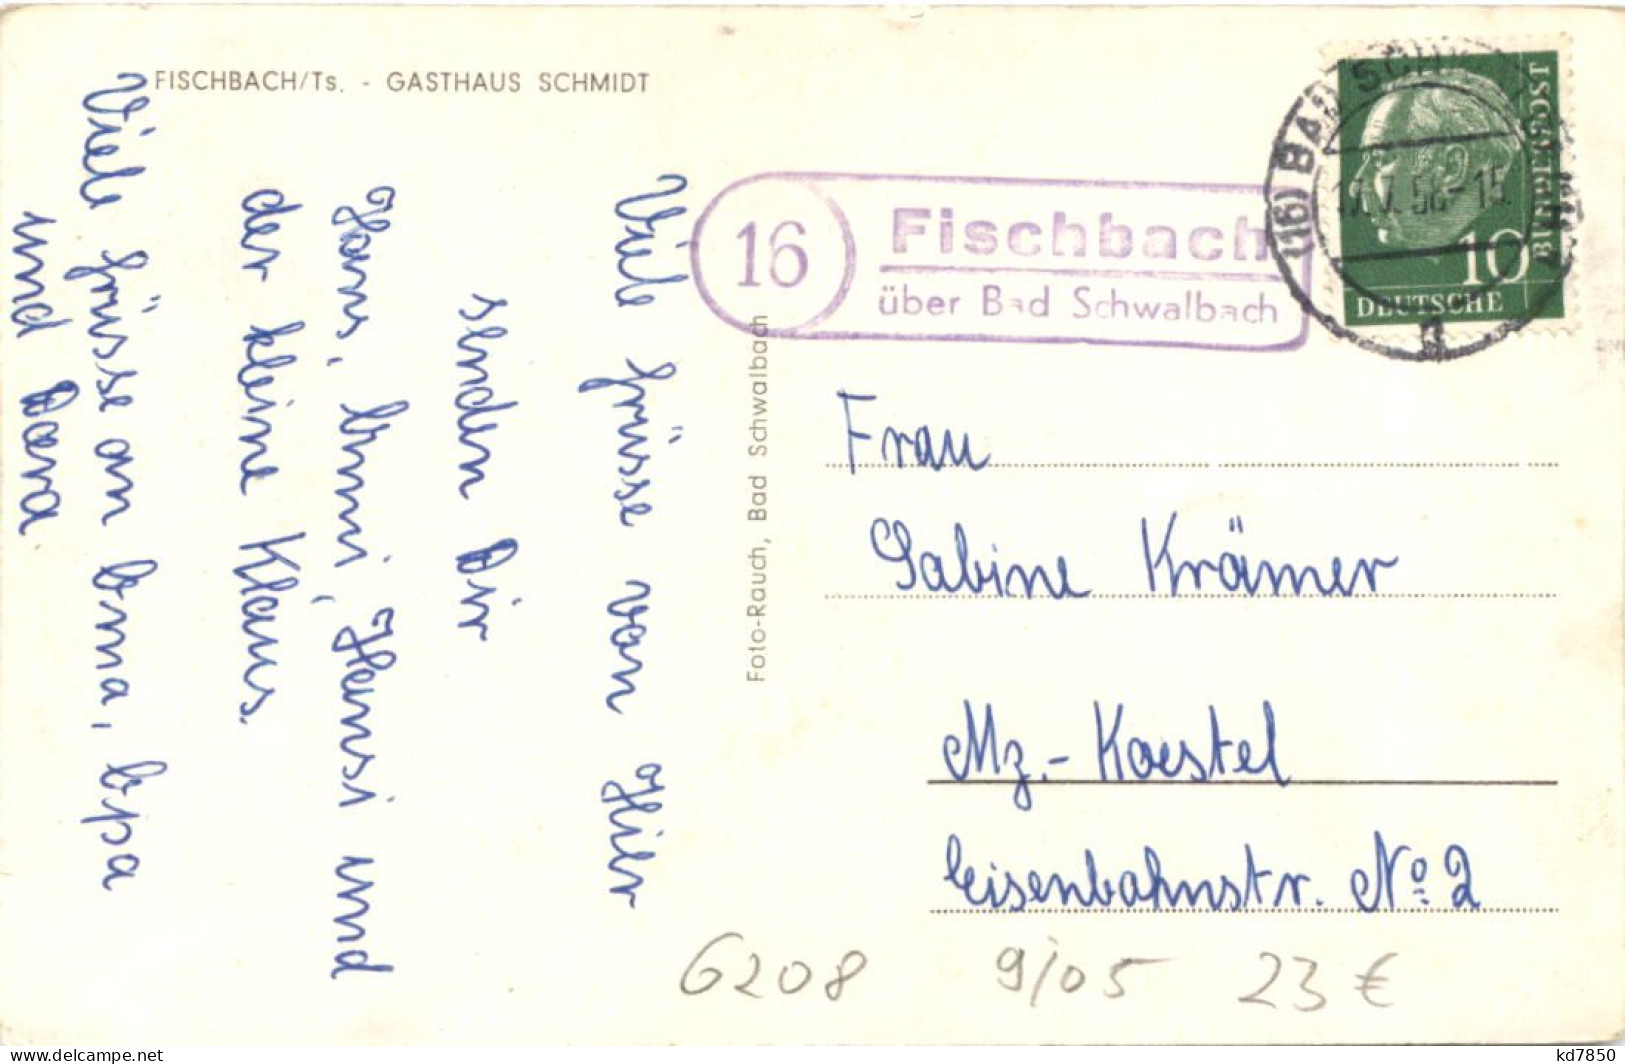 FISCHBACH/Ts. - GASTHAUS SCHMIDT
Viele Grüsse von Hier
senden Dir
Hans, Emmi, Hansi und
der kleine Klaus.
Viele Grüsse an Oma, Opa
und Dora.
Foto-Rauch, Bad Schwalbach
16
Fischbach
über Bad Schwalbach
(16) BAD SCHW
56-15
DEUTSCHE
BUNDESPOST
10
Frau
Sabine Krämer
Mz.- Kastel
Eisenbahnstr. No 2
G208 9/05 23 €
FISCHBACH - GASTHAUS SCHMIDT
kd7850